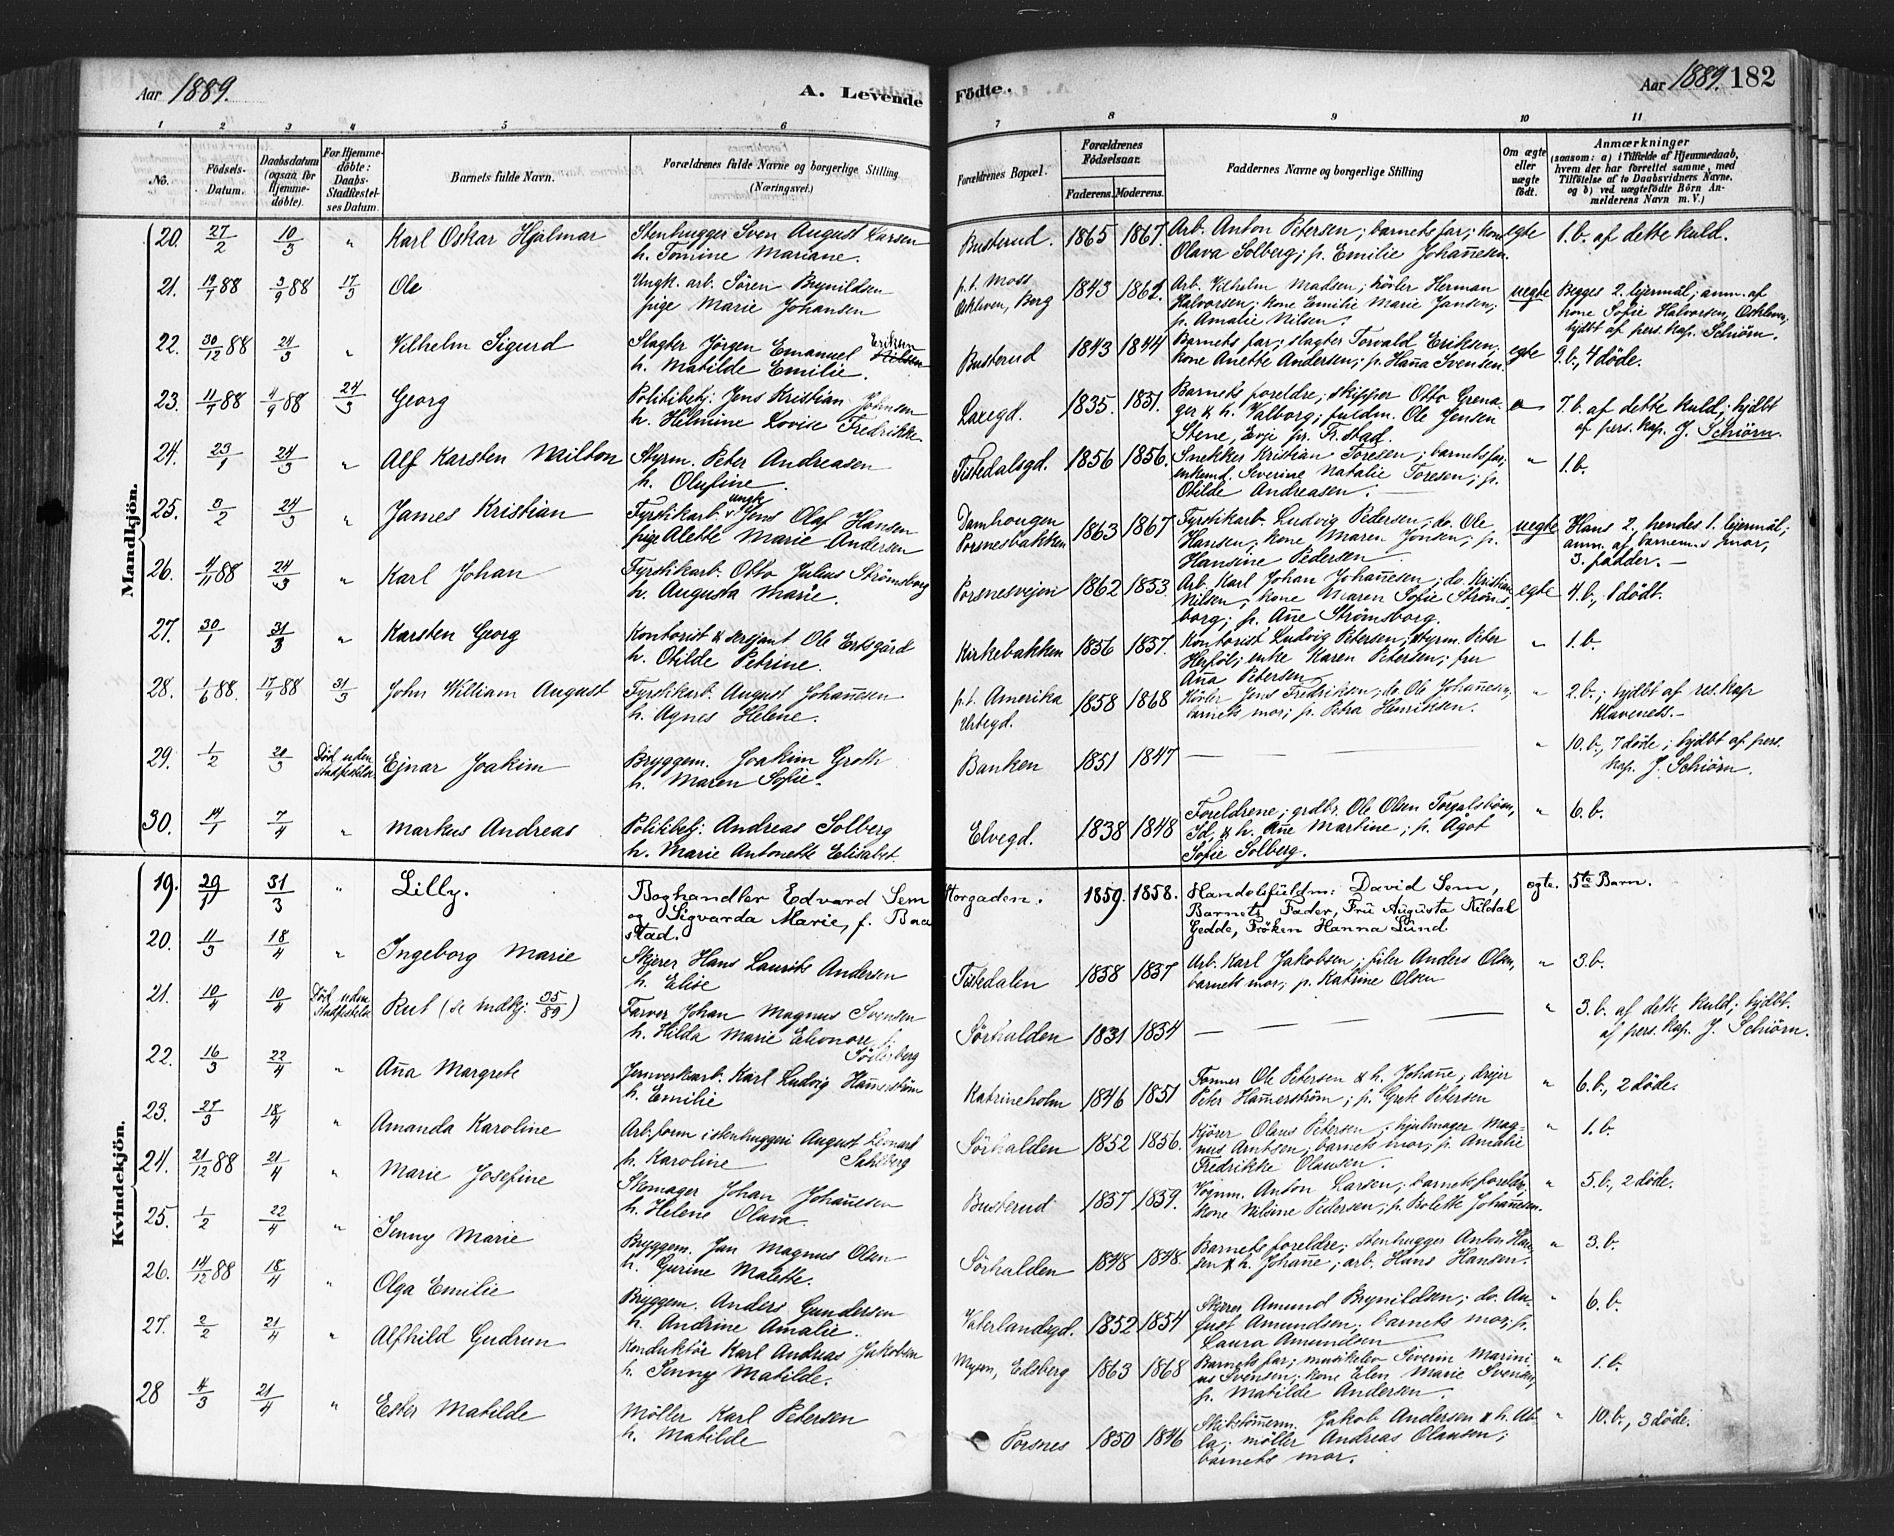 Aar 1889. A. Levende Födte. Aar 1889. 182
1 2 3 4 5 6 7 8 9 10 11
No. Födsels-Datum. Daabsdatum (ogsaa for Hjemme-döbte). For Hjemme-döbte: Daabs-Stadfæstel-ses Datum. Barnets fulde Navn. Forældrenes fulde Navne og borgerlige Stilling (Næringsvei.) Forældrenes Bopæl. Forældrenes Födselsaar. Faderens. Moderens. Faddernes Navne og borgerlige Stilling Om ægte eller uægte födt. Anmærkninger (saasom: a) i Tilfælde af Hjemmedaab, hvem der har forrettet samme, med Tilföielse af to Daabsvidners Navne, og b) ved uægtefödte Börn An-melderens Navn m. V.)
Mandkjön.
20. 27/2 10/3 " Karl Oskar Hjalmar Stenhugger Sven August Larsen h. Tomine Mariane. Busterud. 1865 1867. Arb. Anton Petersen; barnets far; kone Olava Solberg; p. Emilie Johañesen. egte 1.b. af dette kuld.
21. 19/7 88 3/9 88 17/3 Ole Ungk. arb. Sören Brynildsen pige Marie Johansen p.t. Moss Oskleven, Borg 1843 1862. Arb. Vilhelm Madsen; hörler Herman Halvorsen; kone Emilie Marie Jansen; p. Amalie Nilsen. uegte Begges 2. leiermål; anm. af kone Sofie Halvorsen, Oskleven; hjdbt af pers. kap. Schiörn.
22. 30/12 88 24/3 " Vilhelm Sigurd Slagter Jörgen Emanuel Eriksen h. Matilde Emilie. Busterud 1843 1844 Barnets far; slagter Torvald Eriksen; kone Anette Andersen; p. Haña Svensen egte 9.b., 4 döde.
23. 11/7 88 4/9 88 24/3 Georg Politibetj. Jens Kristian Johnsen h. Helmine Lovise Fredrikke Laxegd. 1835. 1851. Barnets foreldre; skipper Otto Grenager & h. Valborg; fuldm. Ole Jensen Stene, Evje pr. Fr.stad. 7.b. af dette kuld; hjdbt af pers. kap. J. Schiörn.
24. 23/1 24/3 " Alf Karsten Milton Styrm. Peter Andreasen h. Olufine. Tistedalsgd. 1856 1856. Snekker Kristian Toresen; barnets far; enkemd. Severine Natalie Toresen; p. Otilde Andreasen. " 1.b.
25. 3/2 24/3 " James Kristian Fyrstikarb. ungk. Jens Olaf Hansen pige Alette Marie Andersen Damhougen Porsnesbakken 1863 1867 Fyrstikarb. Ludvig Pedersen; do. Ole Hansen; kone Maren Jonsen; p. Hansine Pedersen uegte Hans 2. hendes 1. leiermål; anm. af barnem.s mor, 3. fadder.
26. 4/11 88 24/3 " Karl Johan Fyrstikarb. Otto Julius Strömsborg h. Augusta Marie. Porsnesveien 1862 1853. Arb. Karl Johan Johañesen; do. Kristian Nilsen; kone Maren Sofie Strömsborg; p. Añe Strömsborg. egte 4.b., 1 dödt.
27. 30/1 31/3 " Karsten Georg Kontorist & serjant Ole Ertsgård h. Otilde Petrine. Kirkebakken 1856 1857. Kontorist Ludvig Petersen; styrm. Peter Herföl; enke Karen Petersen; frk Aña Petersen " 1.b.
28. 1/6 88. 17/9 88 31/3 John William August Fyrstikarb. August Johañesen h. Agnes Helene. p.t. Amerika Urtegd. 1858 1868 Hövler Jens Fredriksen; do. Ole Johañesen; barnets mor; p. Petra Henriksen. " 2.b.; hjdbt af res. kap Klavenets.
29. 1/2 21/3 Död uden stadfæstelse Ejnar Joakim Bryggem. Joakim Groth h. Maren Sofie. Banken 1851 1847 — " 10.b., 7 döde; hjdbt af pers. kap. J. Schiörn.
30. 14/1 7/4 " Markus Andreas Politibetj. Andreas Solberg h. Marie Antonette Elisabet Elvegd. 1838 1848 Foreldrene; grdbr. Ole Olsen Torgalsböen, Id, & h. Añe Martine; p. Ågot Sofie Solberg. " 6.b.
Kvindekjön.
19. 29/1 31/3 " Lilly. Boghandler Edvard Sem og Sigvarda Marie, f. Baastad. Torgaden. 1859. 1858. Handelsfuldm: David Sem, Barnets Fader, Fru Augusta Kildal Gedde, Fröken Hanna Lund ægte. 5te Barn.
20. 11/3 18/4 " Ingeborg Marie Skjerer Hans Laurits Andersen h. Elise Tistedalen 1858 1857 Arb. Karl Jakobsen; filer Anders Olsen, barnets mor, p. Katrine Olsen " 3.b.
21. 10/4 10/4 Död uden Stadfæstelse Rut (se mdkj: 35/89) Farver Johan Magnus Svensen h. Hilda Marie Eleonore f. Söderberg Sörhalden 1831 1834 — " 3.b. af dette kuld; hjdbt af pers. kap. J. Schiörn.
22. 16/3 22/4 " Aña Margrete Jernverksarb. Karl Ludvig Hañerström h. Emilie Katrineholm 1846 1851 Former Ole Petersen & h. Johañe; drejer Peter Hañerström; p. Grete Petersen " 6.b., 2 döde.
23. 27/3 18/4 " Amanda Karoline Arb.form. i stenhuggeri August Leonard h. Karoline Sahlberg Sörhalden 1852 1856. Kjörer Olaus Petersen; hjulmager Magnus Arntsen; barnets mor; p. Amalie Fredrikke Olausen. " 1.b.
24. 21/12 88 21/4 " Marie Josefine Skomager Johan Johañesen h. Helene Olava Busterud 1857 1859. Vognm. Anton Larsen; barnets foreldre; kone Nilsine Pedersen; p. Bolette Johañesen. " 5.b., 2 döde.
25. 1/2 22/4 " Jenny Marie Bryggem. Jan Magnus Olsen h. Gurine Malette. Sörhalden 1848 1848. Barnets foreldre; stenhugger Anton Hansen & h. Johañe; arb. Hans Hansen. " 3.b.
26. 14/12 88 18/4 " Olga Emilie Bryggem. Anders Gundersen h. Andrine Amalie. Vaterlandsgd. 1852 1854 Skjerer Amund Brynildsen; do. August Amundsen; barnets mor; p. Laura Amundsen " 6.b.
27. 2/2 21/4 " Alfhild Gudrun Konduktör Karl Andreas Jakobsen h. Jenny Matilde. Mysen, Edsberg 1863 1868 Barnets far; musikelev Severin Marinius Svensen; kone Elen Marie Svensen; p. Matilde Andersen. " 1.b.
28 4/3 21/4 " Ester Matilde Möller Karl Petersen h. Matilde Porsnes 1850 1846 Skibstömerm. Jakob Andersen & h. Abla; möller Andreas Olausen; barnets mor. " 10.b., 3 döde.